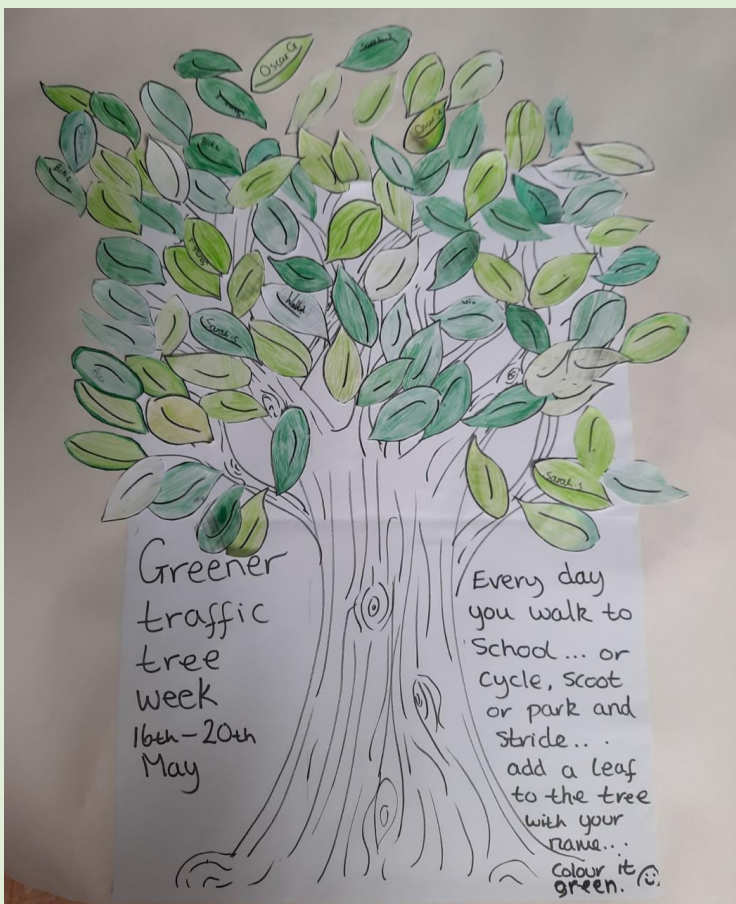 Oscar G
Sarah.S
Sarah.S
Sarah.S
Greener
traffic
tree
week
16th - 20th
May
Every day
you walk to
School... or
cycle, scoot
or park and
stride...
add a leaf
to the tree
with your
name...
Colour it
green.